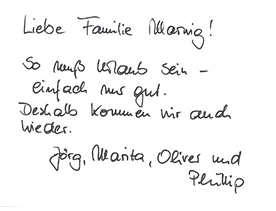 Liebe Familie Marnig!
So muß Urlaub sein –
einfach nur gut.
Deshalb kommen wir auch
wieder.
Jörg, Marita, Oliver und
Phillip